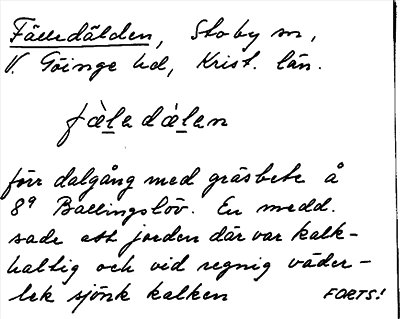 Fälledälden, Stoby sn,
V. Göinge hd, Krist. län.
fàledàlen
förr dalgång med gräsbete å
8⁹ Ballingslöv. En medd.
sade att jorden där var kalk-
haltig och vid regnig väder-
lek sjönk kalken FORTS!